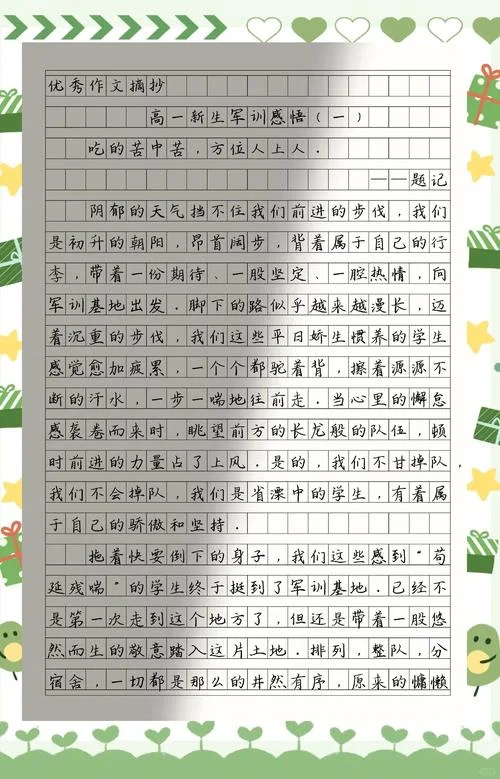 优秀作文摘抄
高一新生军训感悟（一）
吃的苦中苦，方位人上人．
——题记
阴郁的天气挡不住我们前进的步伐，我们
是初升的朝阳，昂首阔步，背着属于自己的行
李，带着一份期待、一股坚定、一腔热情，向
军训基地出发．脚下的路似乎越来越漫长，迈
着沉重的步伐，我们这些平日娇生惯养的学生
感觉愈加疲累，一个个都驼着背，擦着源源不
断的汗水，一步一喘地往前走．当心里的懈怠
感袭卷而来时，眺望前方的长龙般的队伍，顿
时前进的力量占了上风．是的，我们不甘掉队，
我们不会掉队，我们是省溧中的学生，有着属
于自己的骄傲和坚持．
拖着快要倒下的身子，我们这些感到“苟
延残喘”的学生终于挺到了军训基地．已经不
是第一次走到这个地方了，但还是带着一股悠
然而生的敬意踏入这片土地．排列，整队，分
宿舍，一切都是那么的井然有序，原来的慵懒